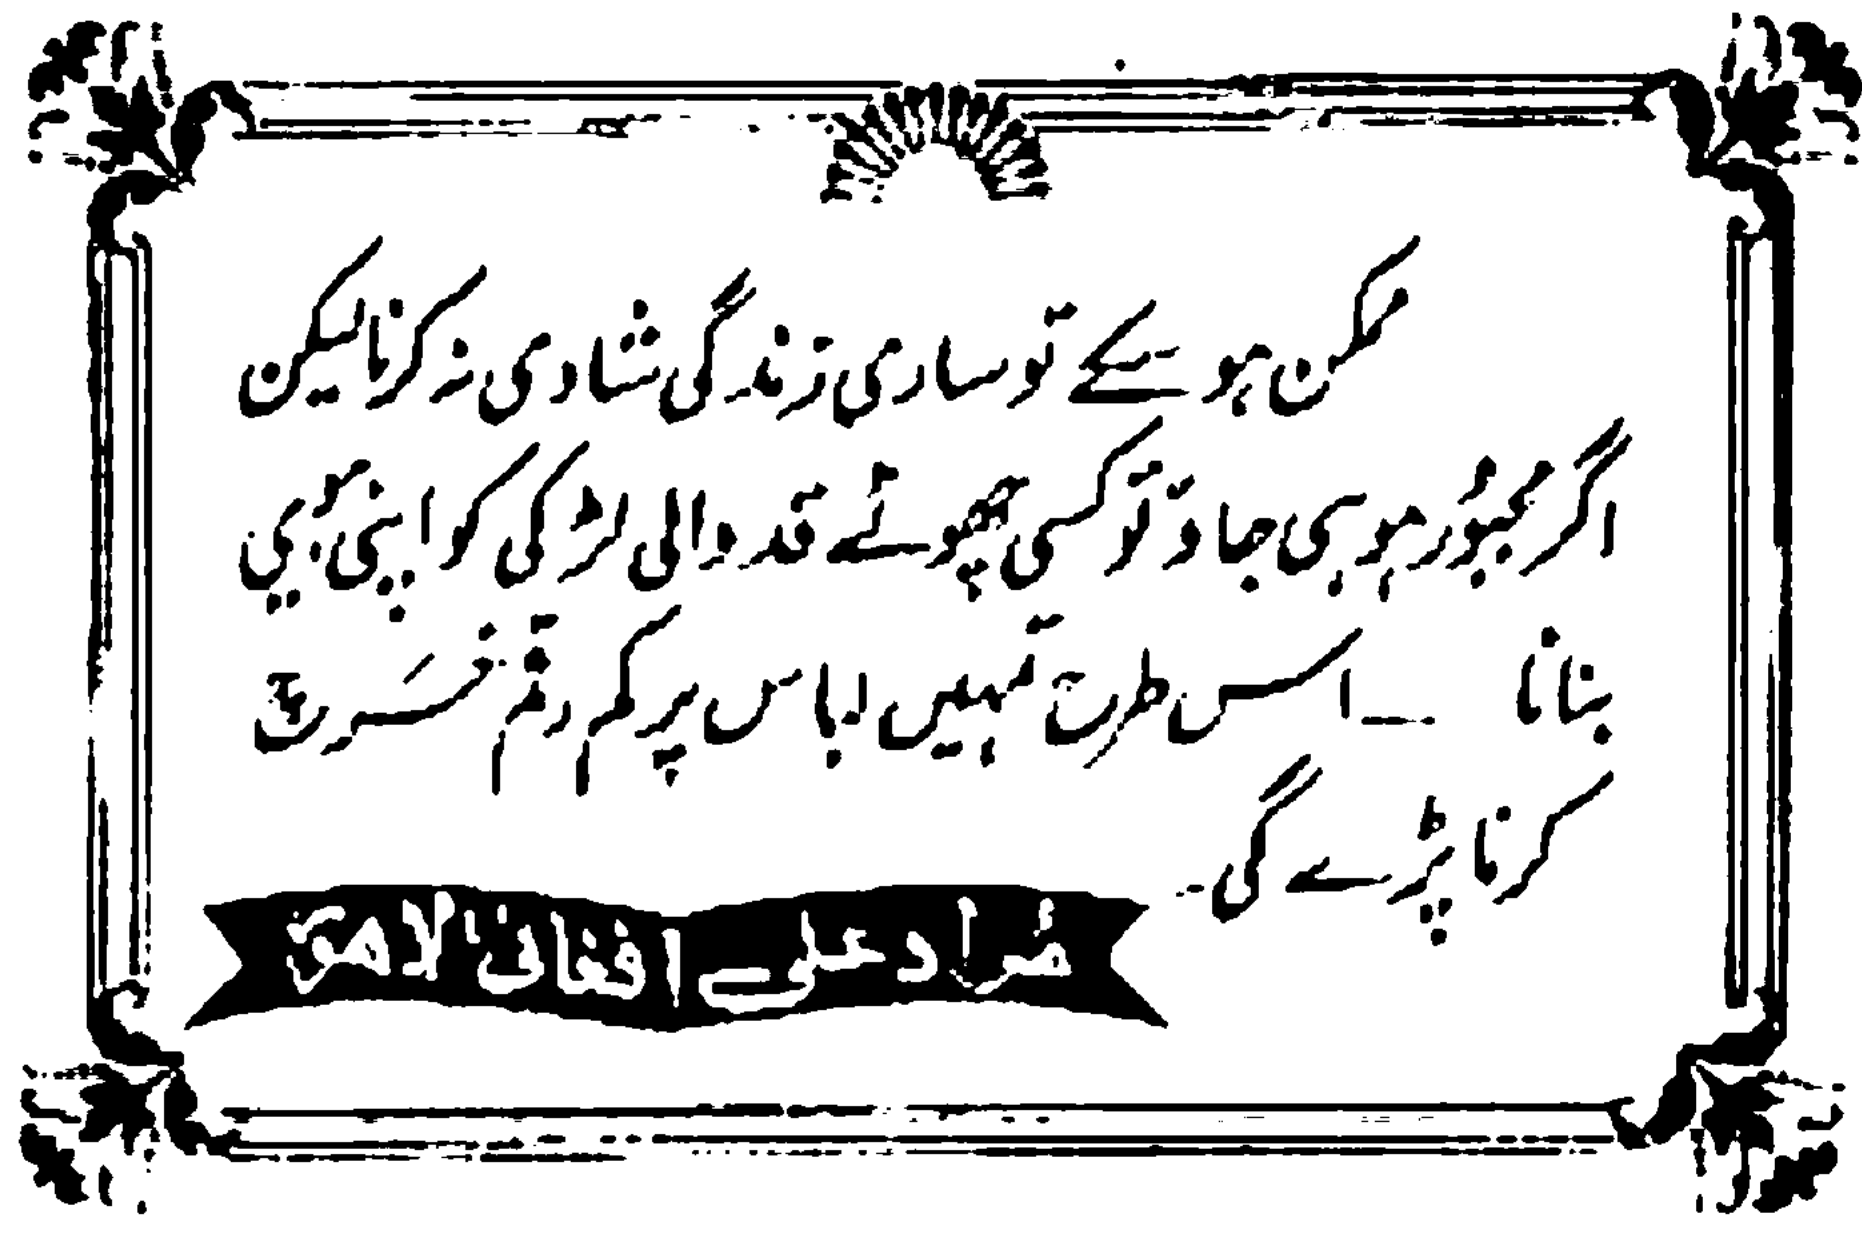 ممکن ہو سکے تو ساری زندگی شادی نہ کرنا لیکن
اگر مجبُور ہو ہی جاؤ تو کسی چھوٹے قد والی لڑکی کو اپنی بیوی
بنانا ـــ اس طرح تمہیں لباس پر کم رقم خرچ
کرنا پڑے گی۔
مُراد علی افغان لاہور